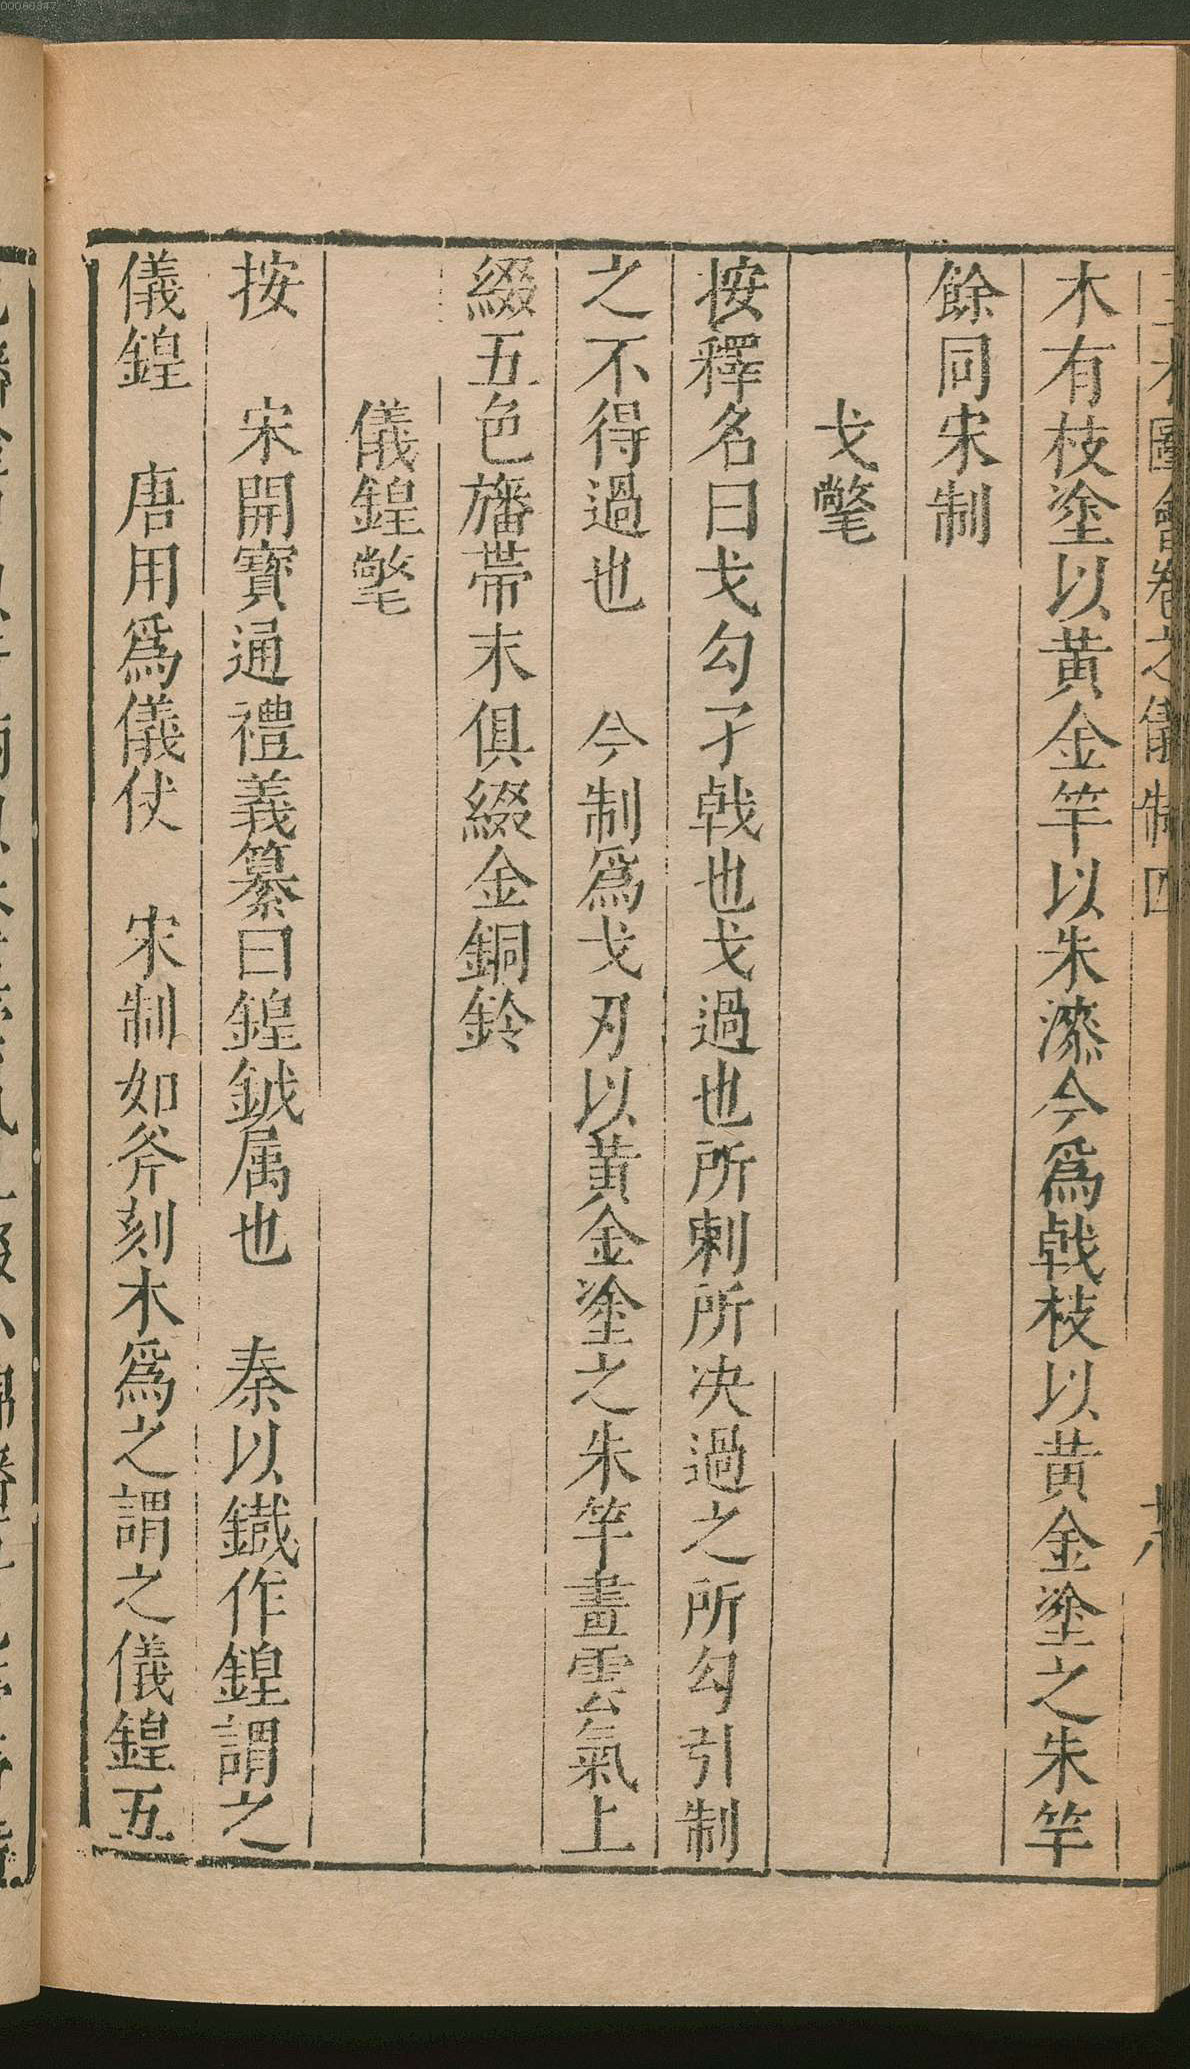 00080347
三才圖會卷之儀制四
木有枝塗以黃金竿以朱漆今爲戟枝以黃金塗之朱竿
餘同宋制
戈氅
按釋名曰戈勾孑戟也戈過也所刺所决過之所勾引制
之不得過也 今制爲戈刃以黃金塗之朱竿畫雲氣上
綴五色旛帶末俱綴金銅鈴
儀鍠氅
按 宋開寶通禮義纂曰鍠鉞属也 秦以鐵作鍠謂之
儀鍠 唐用爲儀仗 宋制如斧刻木爲之謂之儀鍠五